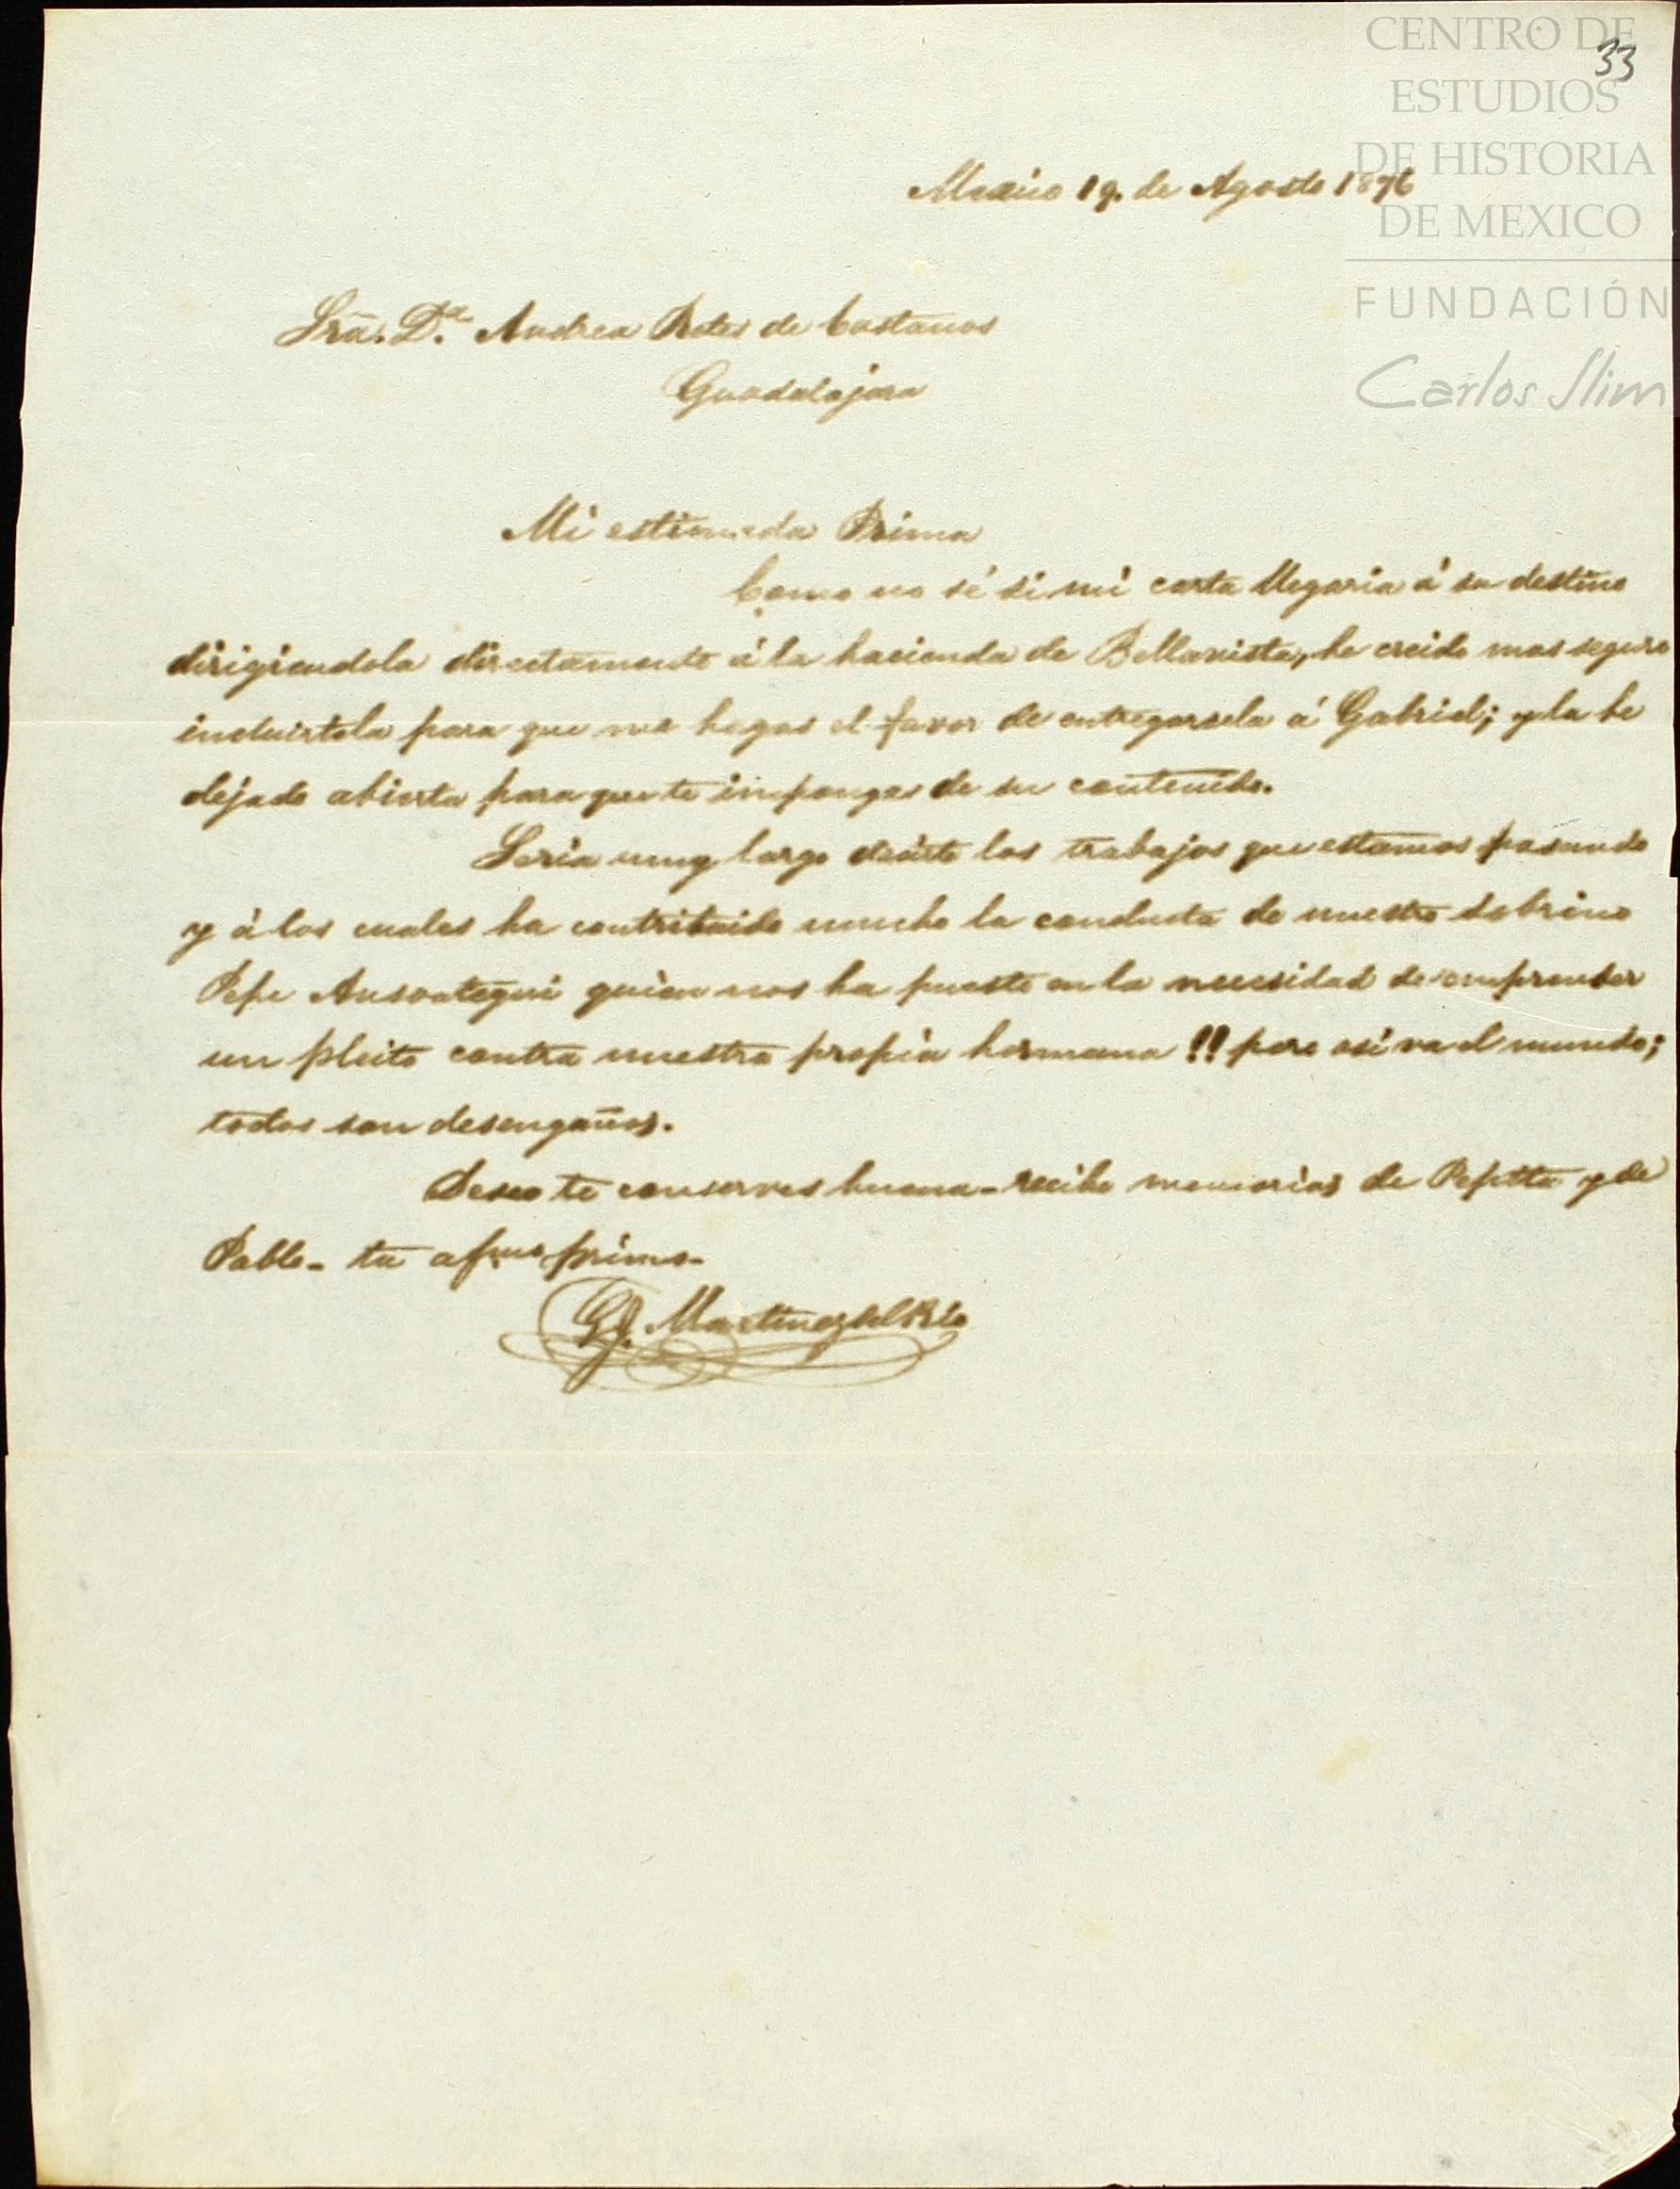 CENTRO DE
33
ESTUDIOS
DE HISTORIA
DE MEXICO
FUNDACIÓN
Carlos Slim
Mexico 19. de Agosto 1876
Sra. Da. Andrea Retes de Castaños
Guadalajara
Mi estimada Prima
Como no sé si mi carta llegaria á su destino
dirigiendola directamente á la hacienda de Bellavista, he creido mas seguro
incluirtela para que me hagas el favor de entregarsela á Gabriel; y la he
dejado abierta para que te impongas de su contenido.
Seria muy largo decirte los trabajos que estamos pasando
y á los cuales ha contribuido mucho la conducta de nuestro sobrino
Pepe Ansoategui quien nos ha puesto en la necesidad de emprender
un pleito contra nuestra propia hermana !! pero asi va el mundo;
todos son desengaños.
Deseo te conserves buena - recibe memorias de Pepita y de
Pablo - tu afmo primo -
G. Martinez del Rio